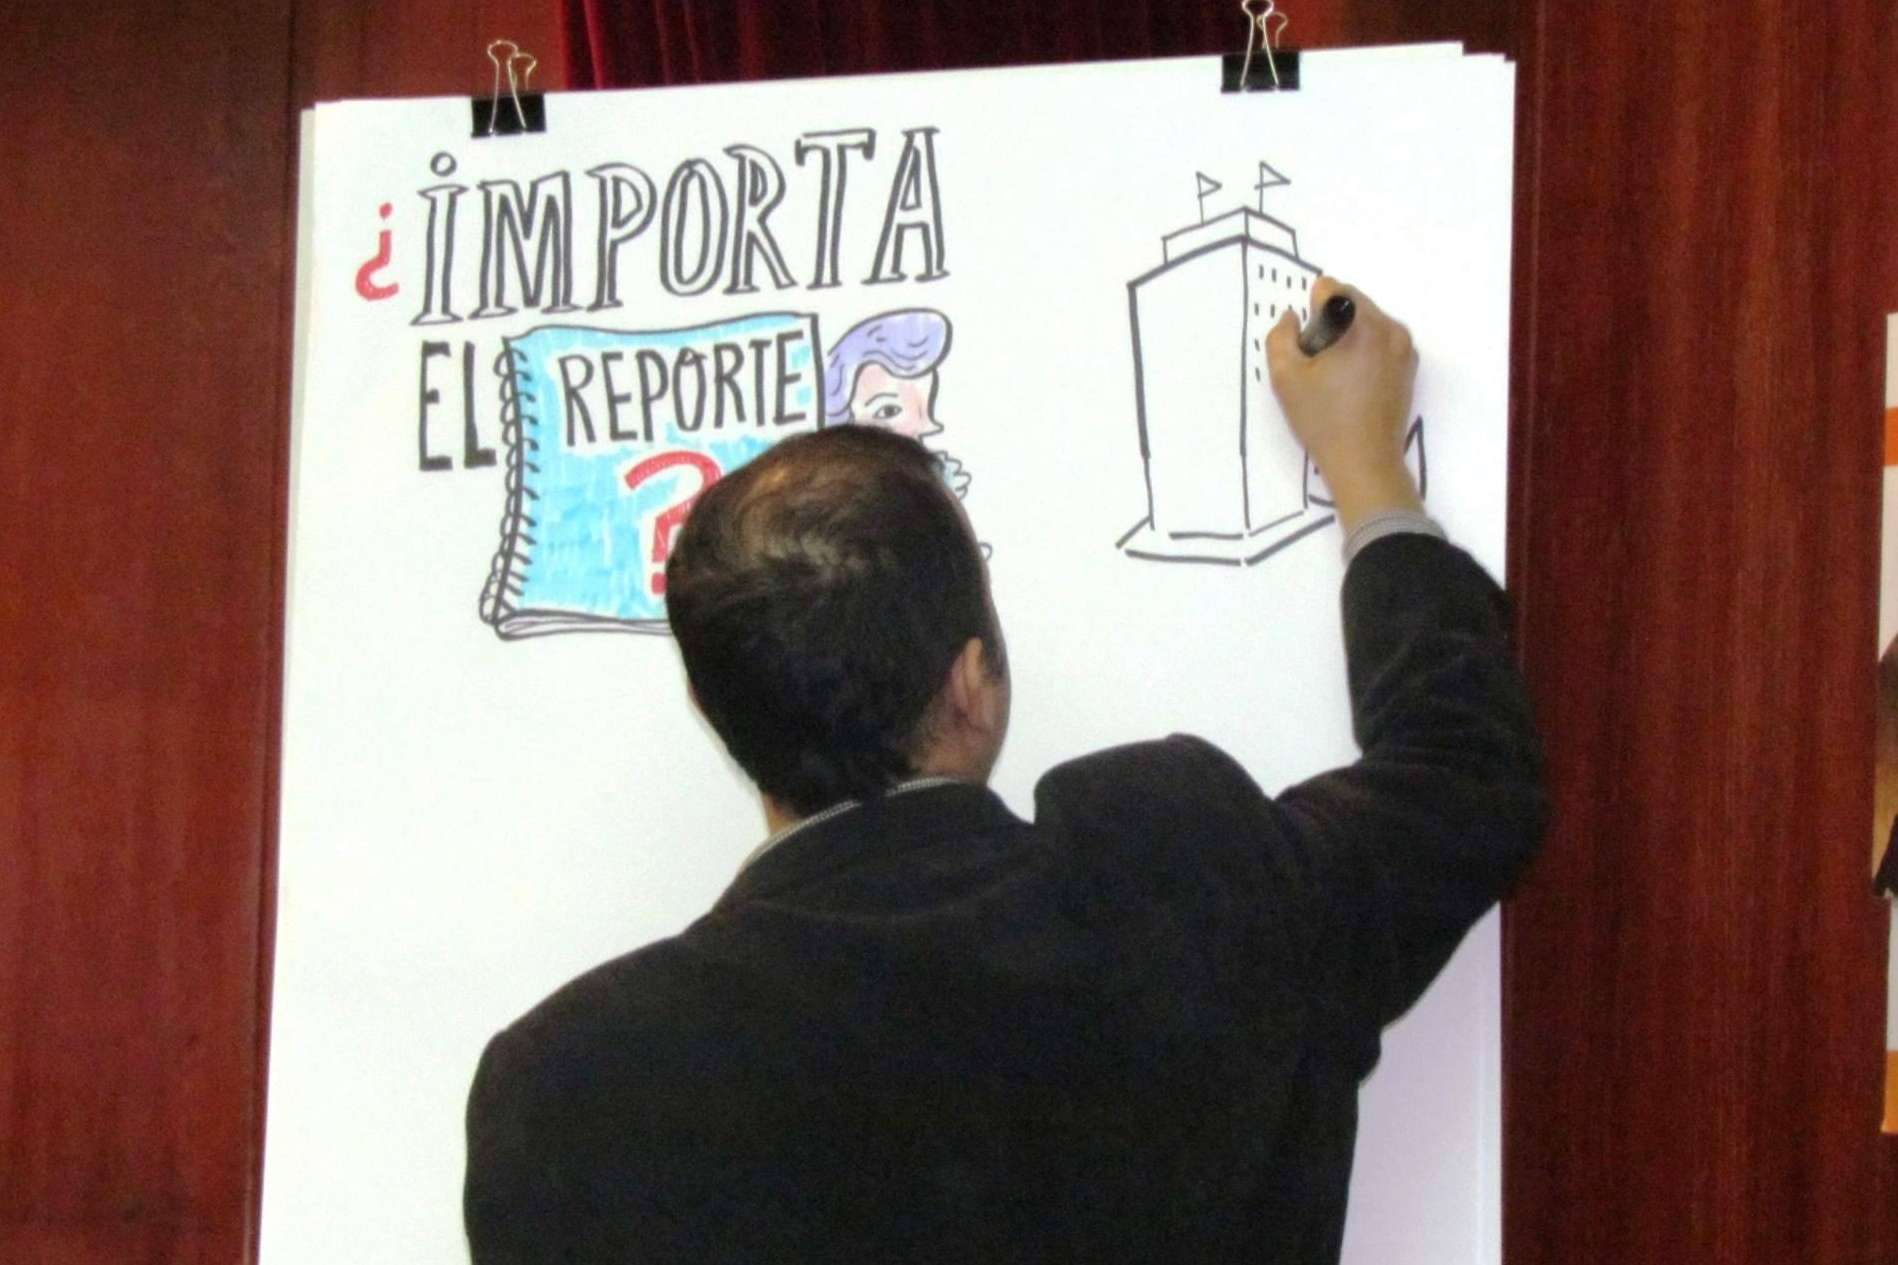 ¿IMPORTA
EL REPORTE
?